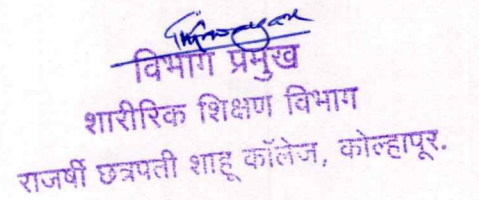 विभाग प्रमुख
शारीरिक शिक्षण विभाग
राजर्षी छत्रपती शाहू कॉलेज, कोल्हापूर.